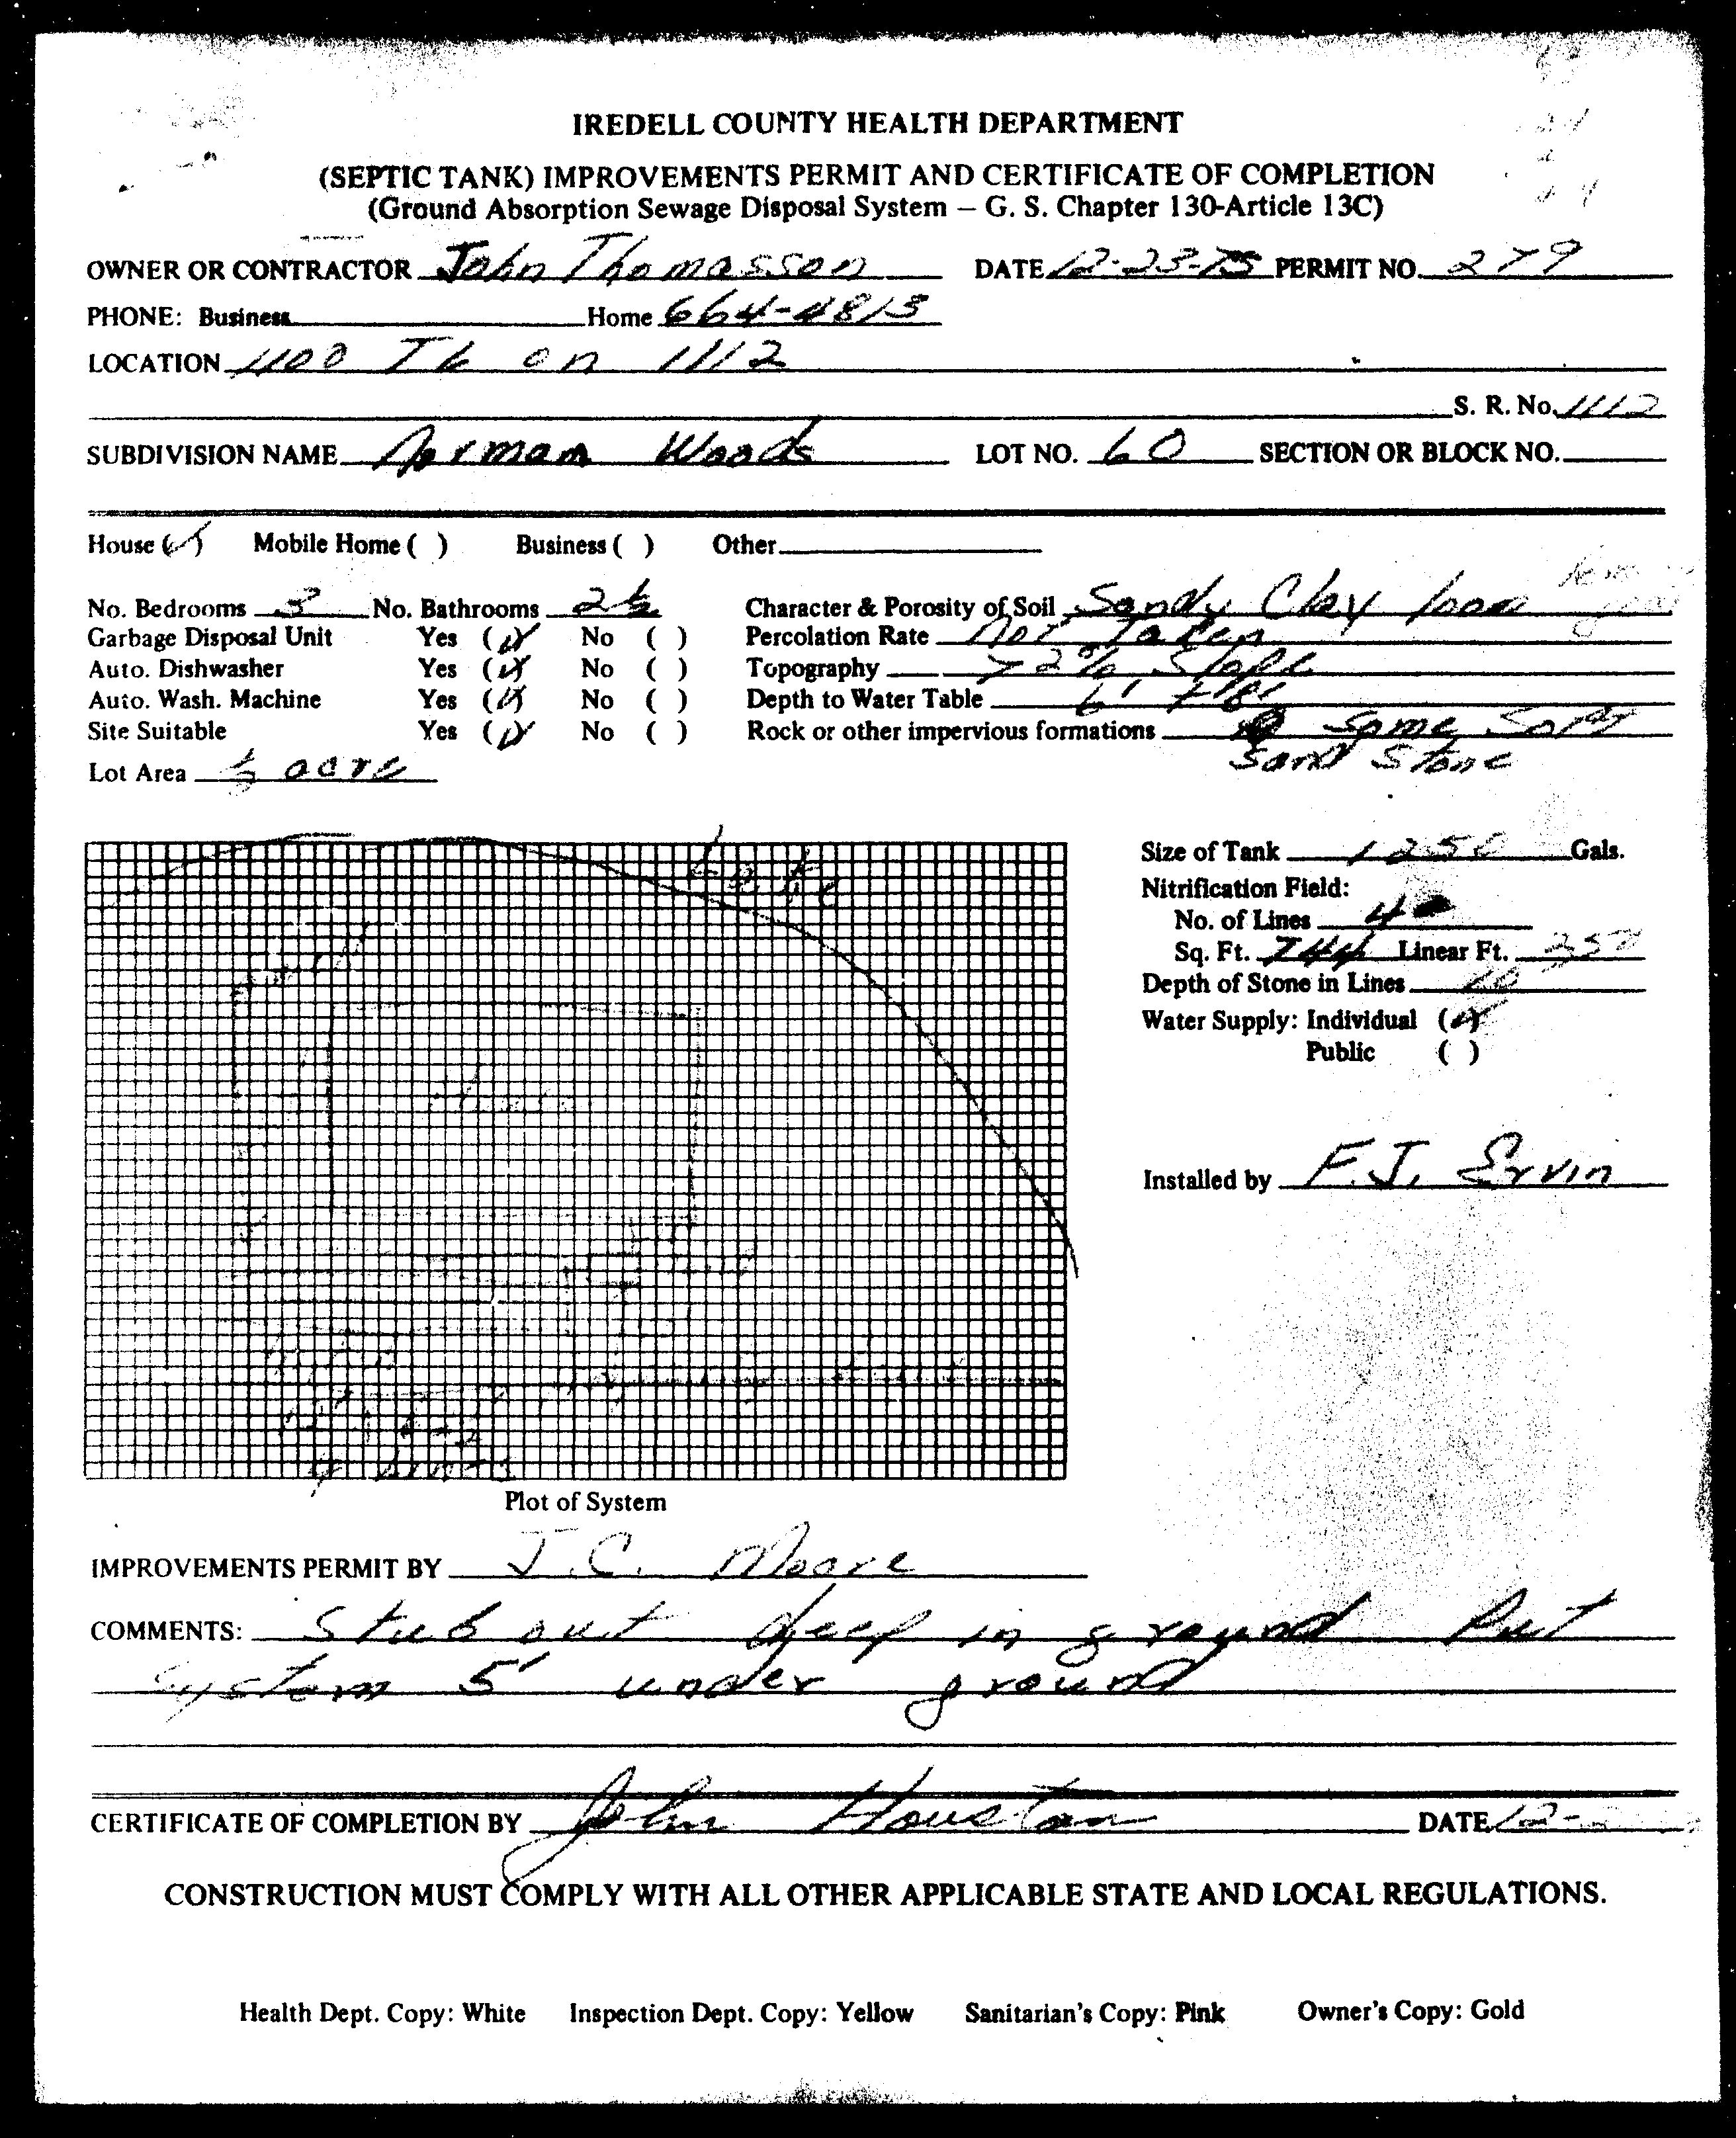 IREDELL COUNTY HEALTH DEPARTMENT
(SEPTIC TANK) IMPROVEMENTS PERMIT AND CERTIFICATE OF COMPLETION
(Ground Absorption Sewage Disposal System – G. S. Chapter 130-Article 13C)
OWNER OR CONTRACTOR John Thomasson DATE 12-23-75 PERMIT NO. 279
PHONE: Business Home 664-4813
LOCATION on 1112
S. R. No. 1112
SUBDIVISION NAME Norman Woods LOT NO. 60 SECTION OR BLOCK NO.
House (✓) Mobile Home ( ) Business ( ) Other
No. Bedrooms 3 No. Bathrooms 2½ Character & Porosity of Soil Sandy Clay loam
Garbage Disposal Unit Yes (✓) No ( ) Percolation Rate Not Taken
Auto. Dishwasher Yes (✓) No ( ) Topography >2% Slope
Auto. Wash. Machine Yes (✓) No ( ) Depth to Water Table 6'
Site Suitable Yes (✓) No ( ) Rock or other impervious formations Some Soft
Sand Stone
Lot Area ½ acre
Lake
Size of Tank 1250 Gals.
Nitrification Field:
No. of Lines 4
Sq. Ft. 744 Linear Ft.
Depth of Stone in Lines
Water Supply: Individual (✓)
Public ( )
Installed by F.J. Ervin
Plot of System
IMPROVEMENTS PERMIT BY J.C. Moore
COMMENTS: Stub out deep in ground Put
system 5' under ground
CERTIFICATE OF COMPLETION BY John Houston DATE 12-
CONSTRUCTION MUST COMPLY WITH ALL OTHER APPLICABLE STATE AND LOCAL REGULATIONS.
Health Dept. Copy: White Inspection Dept. Copy: Yellow Sanitarian's Copy: Pink Owner's Copy: Gold